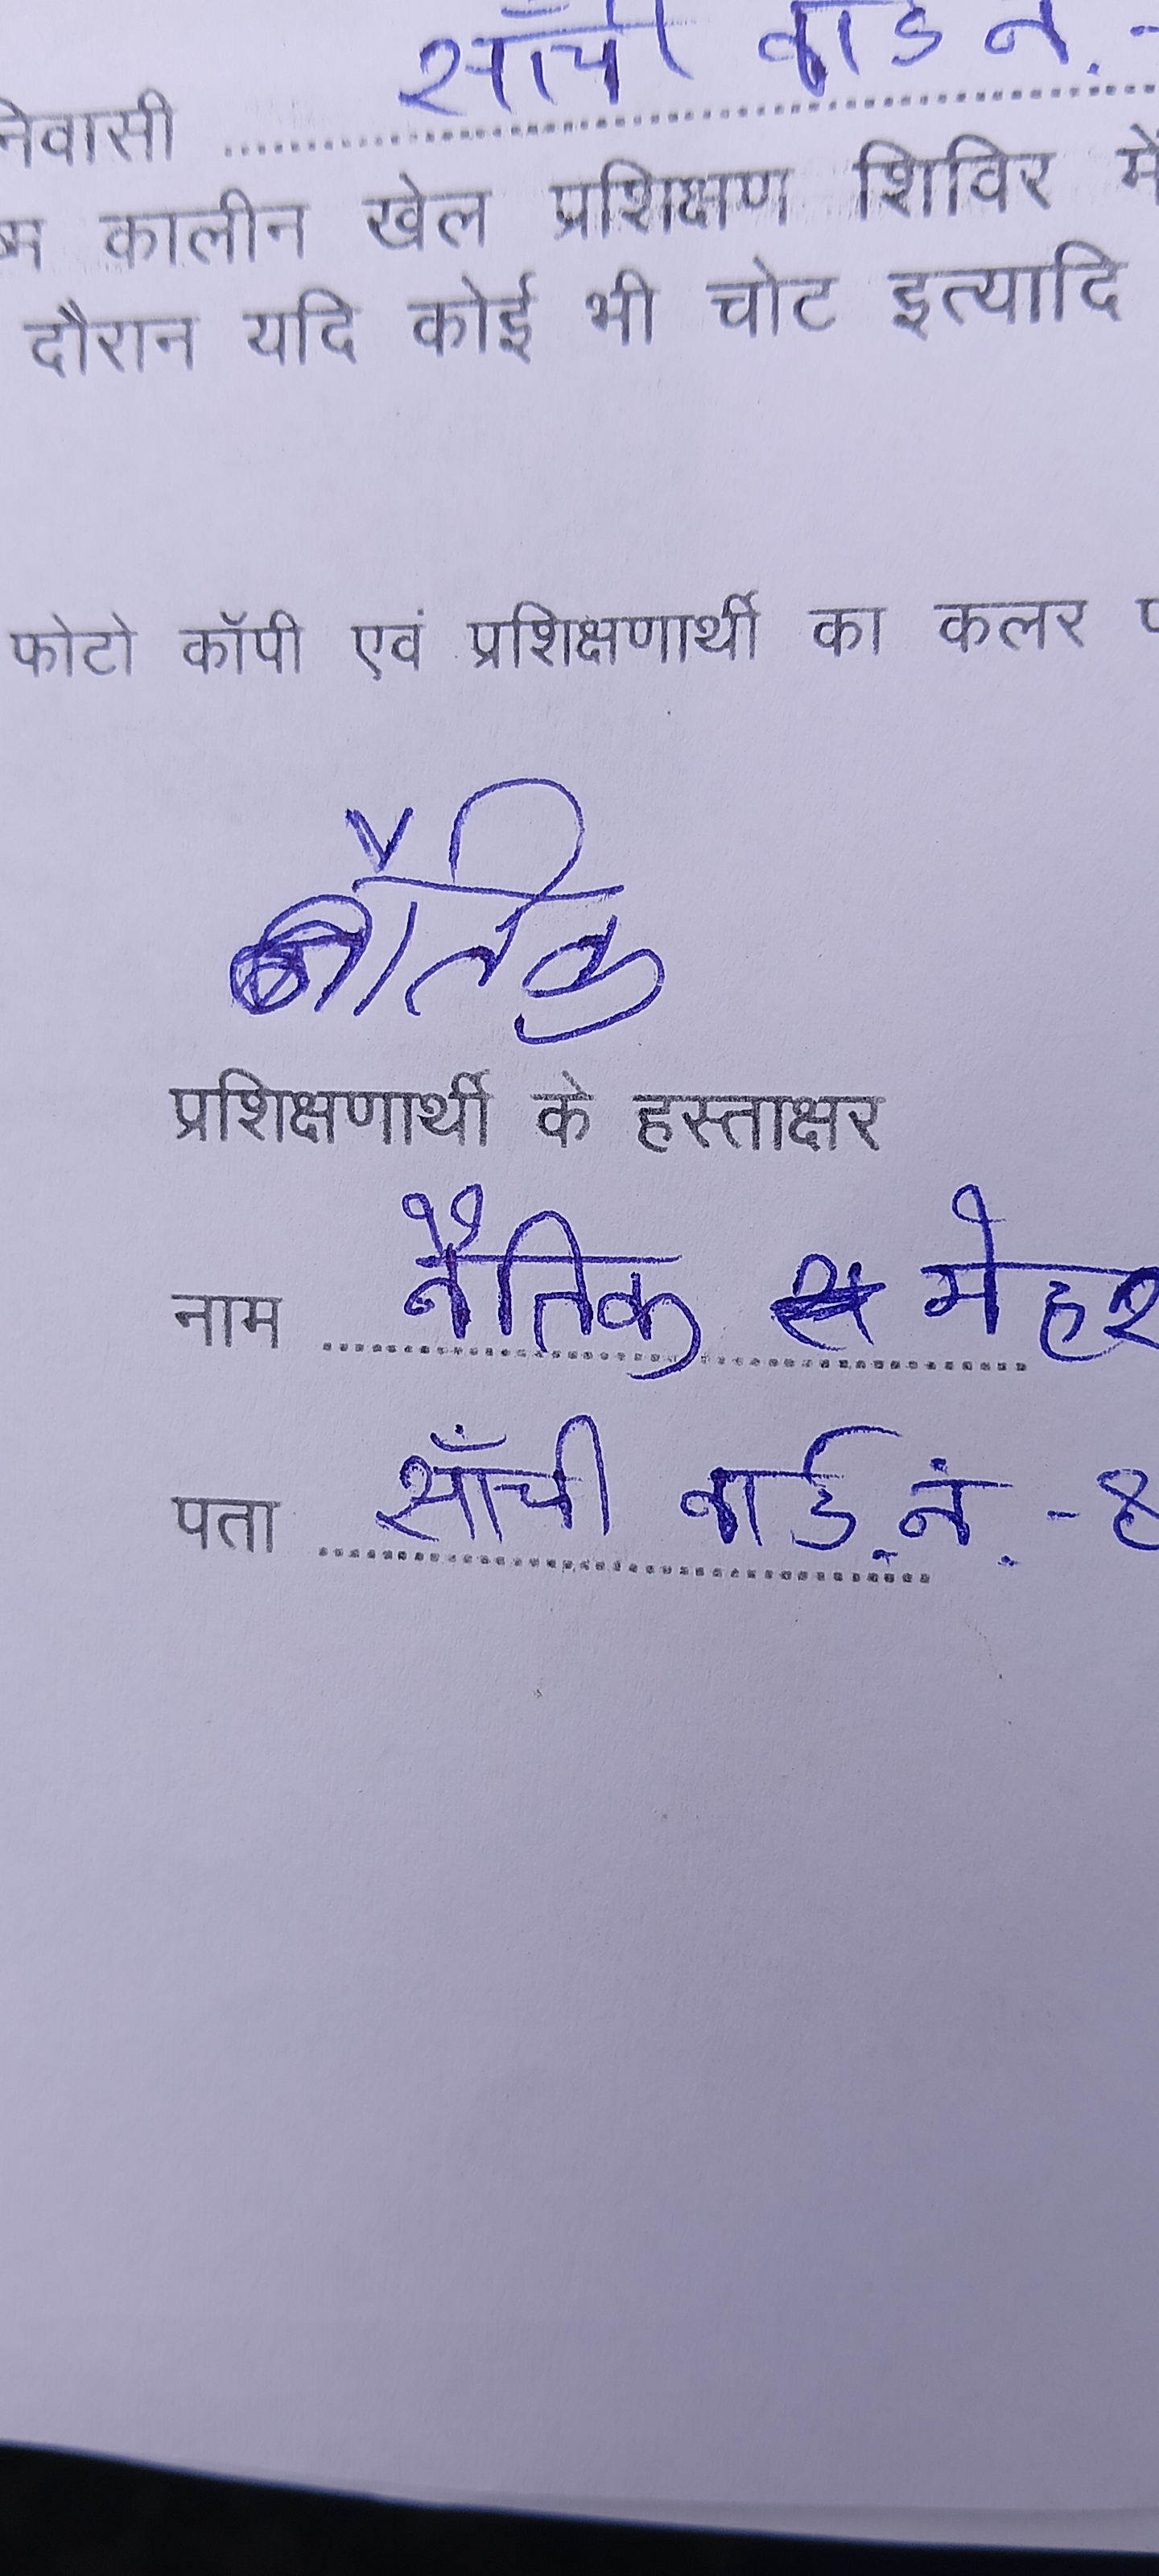 साँची वार्ड नं. -
निवासी ........................
ष्म कालीन खेल प्रशिक्षण शिविर में
दौरान यदि कोई भी चोट इत्यादि
फोटो कॉपी एवं प्रशिक्षणार्थी का कलर
नैतिक
प्रशिक्षणार्थी के हस्ताक्षर
नाम नैतिक मेहर
पता साँची वार्ड नं. - 8